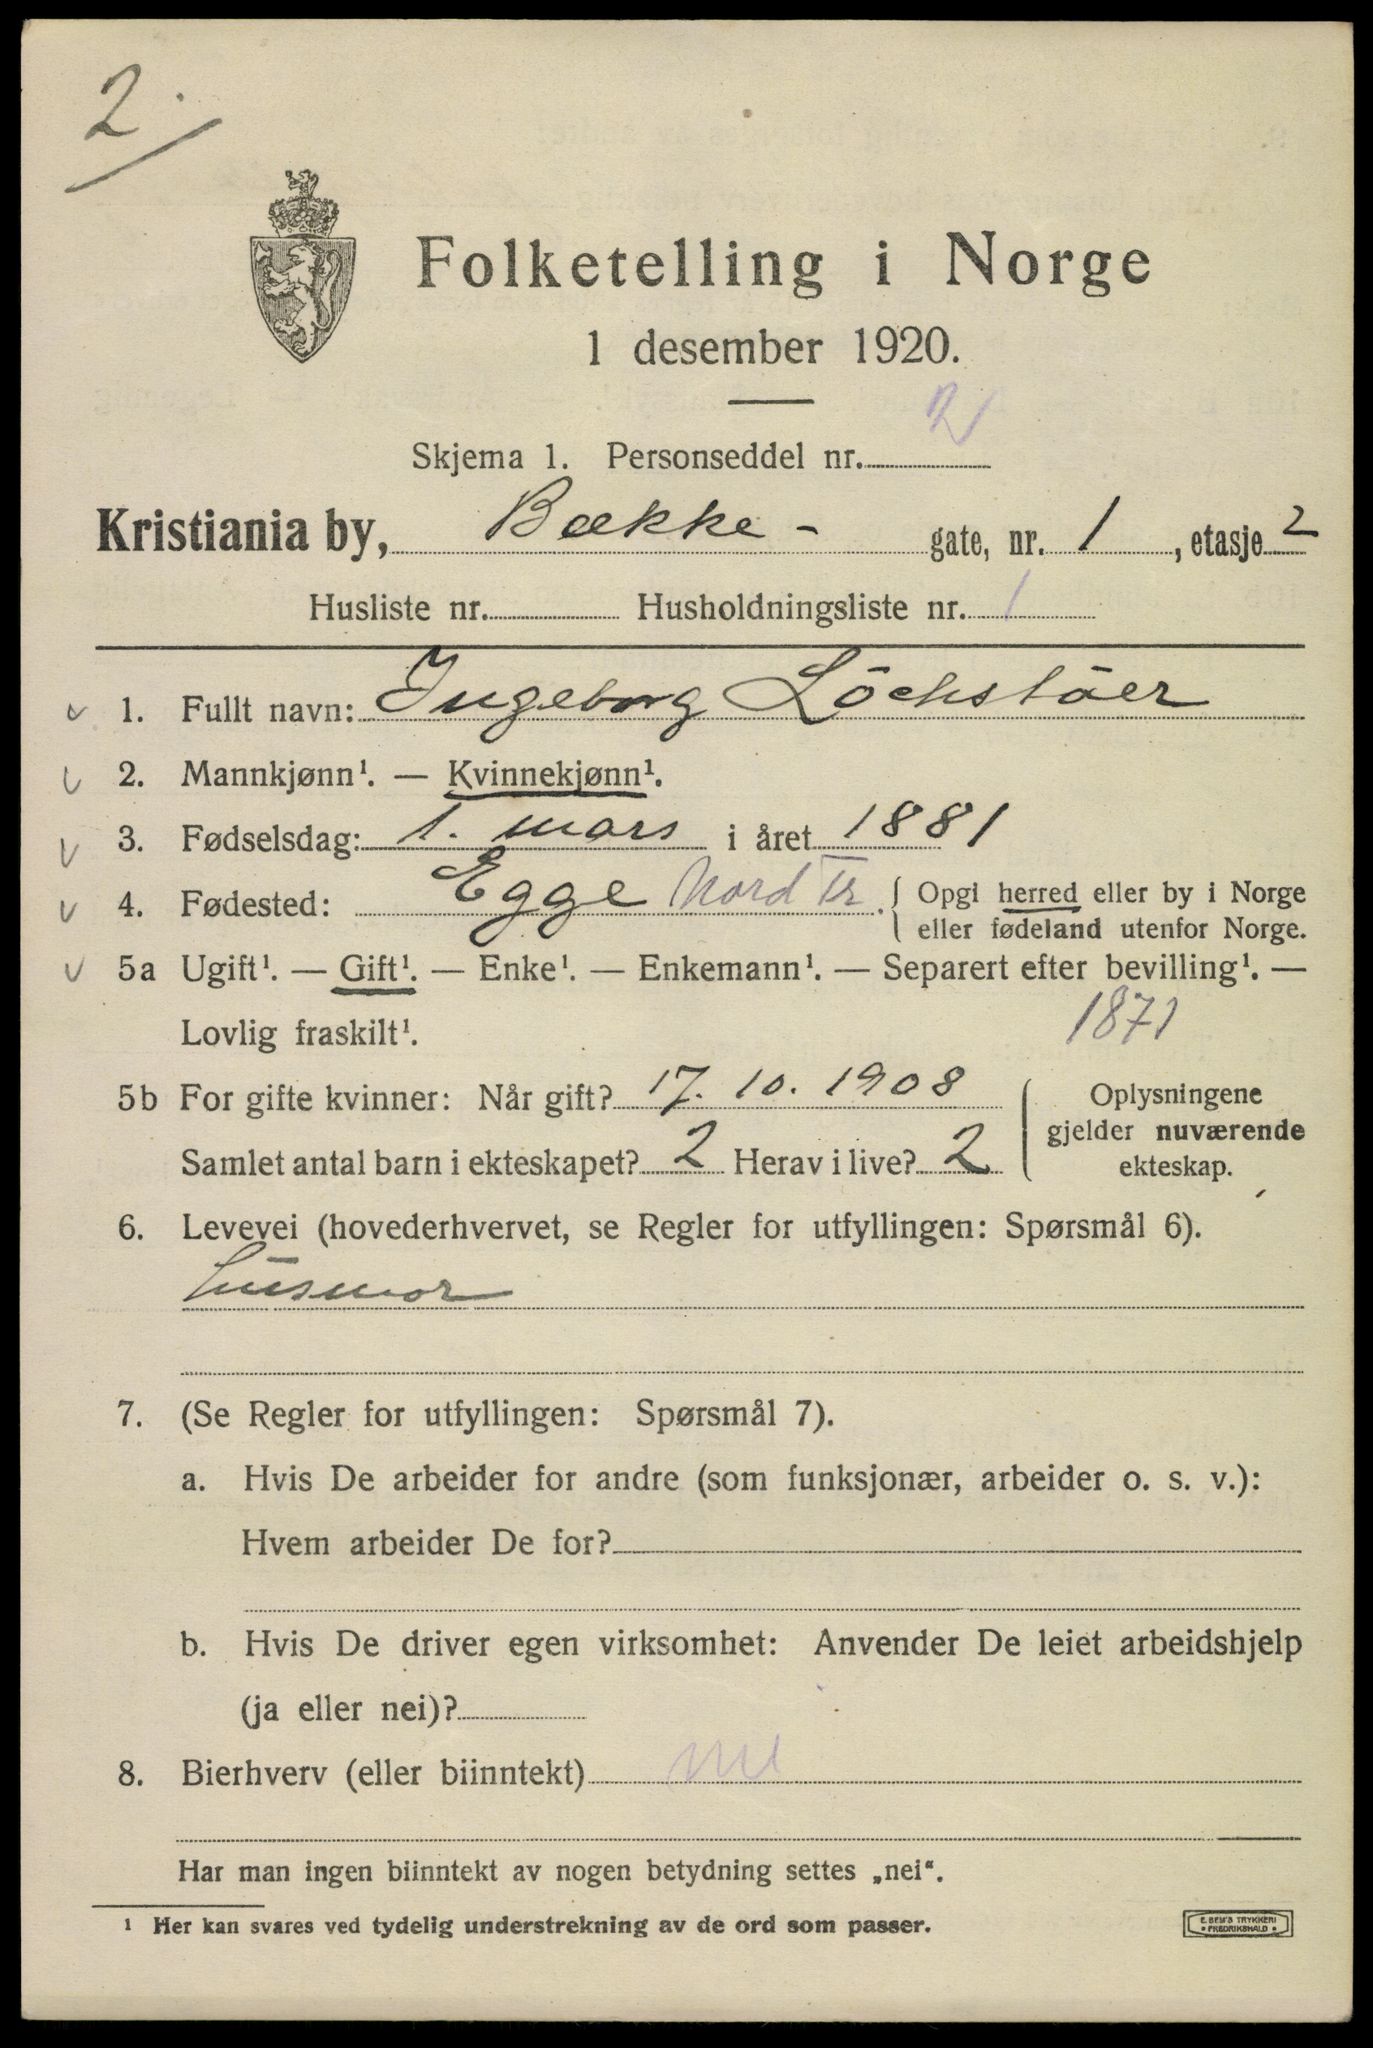 2.
Folketelling i Norge
1 desember 1920.
Skjema 1. Personseddel nr. 2
Kristiania by, Bække- gate, nr. 1, etasje 2
Husliste nr. Husholdningsliste nr. 1
1. Fullt navn: Ingeborg Löchstöer
2. Mannkjønn¹. — Kvinnekjønn¹.
3. Fødselsdag: 1. mars i året 1881
4. Fødested: Egge Nord Tr. { Opgi herred eller by i Norge
eller fødeland utenfor Norge.
5a Ugift¹. — Gift¹. — Enke¹. — Enkemann¹. — Separert efter bevilling¹. —
Lovlig fraskilt¹. 1871
5b For gifte kvinner: Når gift? 17. 10. 1908
Samlet antal barn i ekteskapet? 2 Herav i live? 2
Oplysningene
gjelder nuværende
ekteskap.
6. Levevei (hovederhvervet, se Regler for utfyllingen: Spørsmål 6).
husmor
7. (Se Regler for utfyllingen: Spørsmål 7).
a. Hvis De arbeider for andre (som funksjonær, arbeider o. s. v.):
Hvem arbeider De for?
b. Hvis De driver egen virksomhet: Anvender De leiet arbeidshjelp
(ja eller nei)?
8. Bierhverv (eller biinntekt) nei
Har man ingen biinntekt av nogen betydning settes „nei“.
¹ Her kan svares ved tydelig understrekning av de ord som passer.
E. SEM'S TRYKKERI
• FREDRIKSHALD •